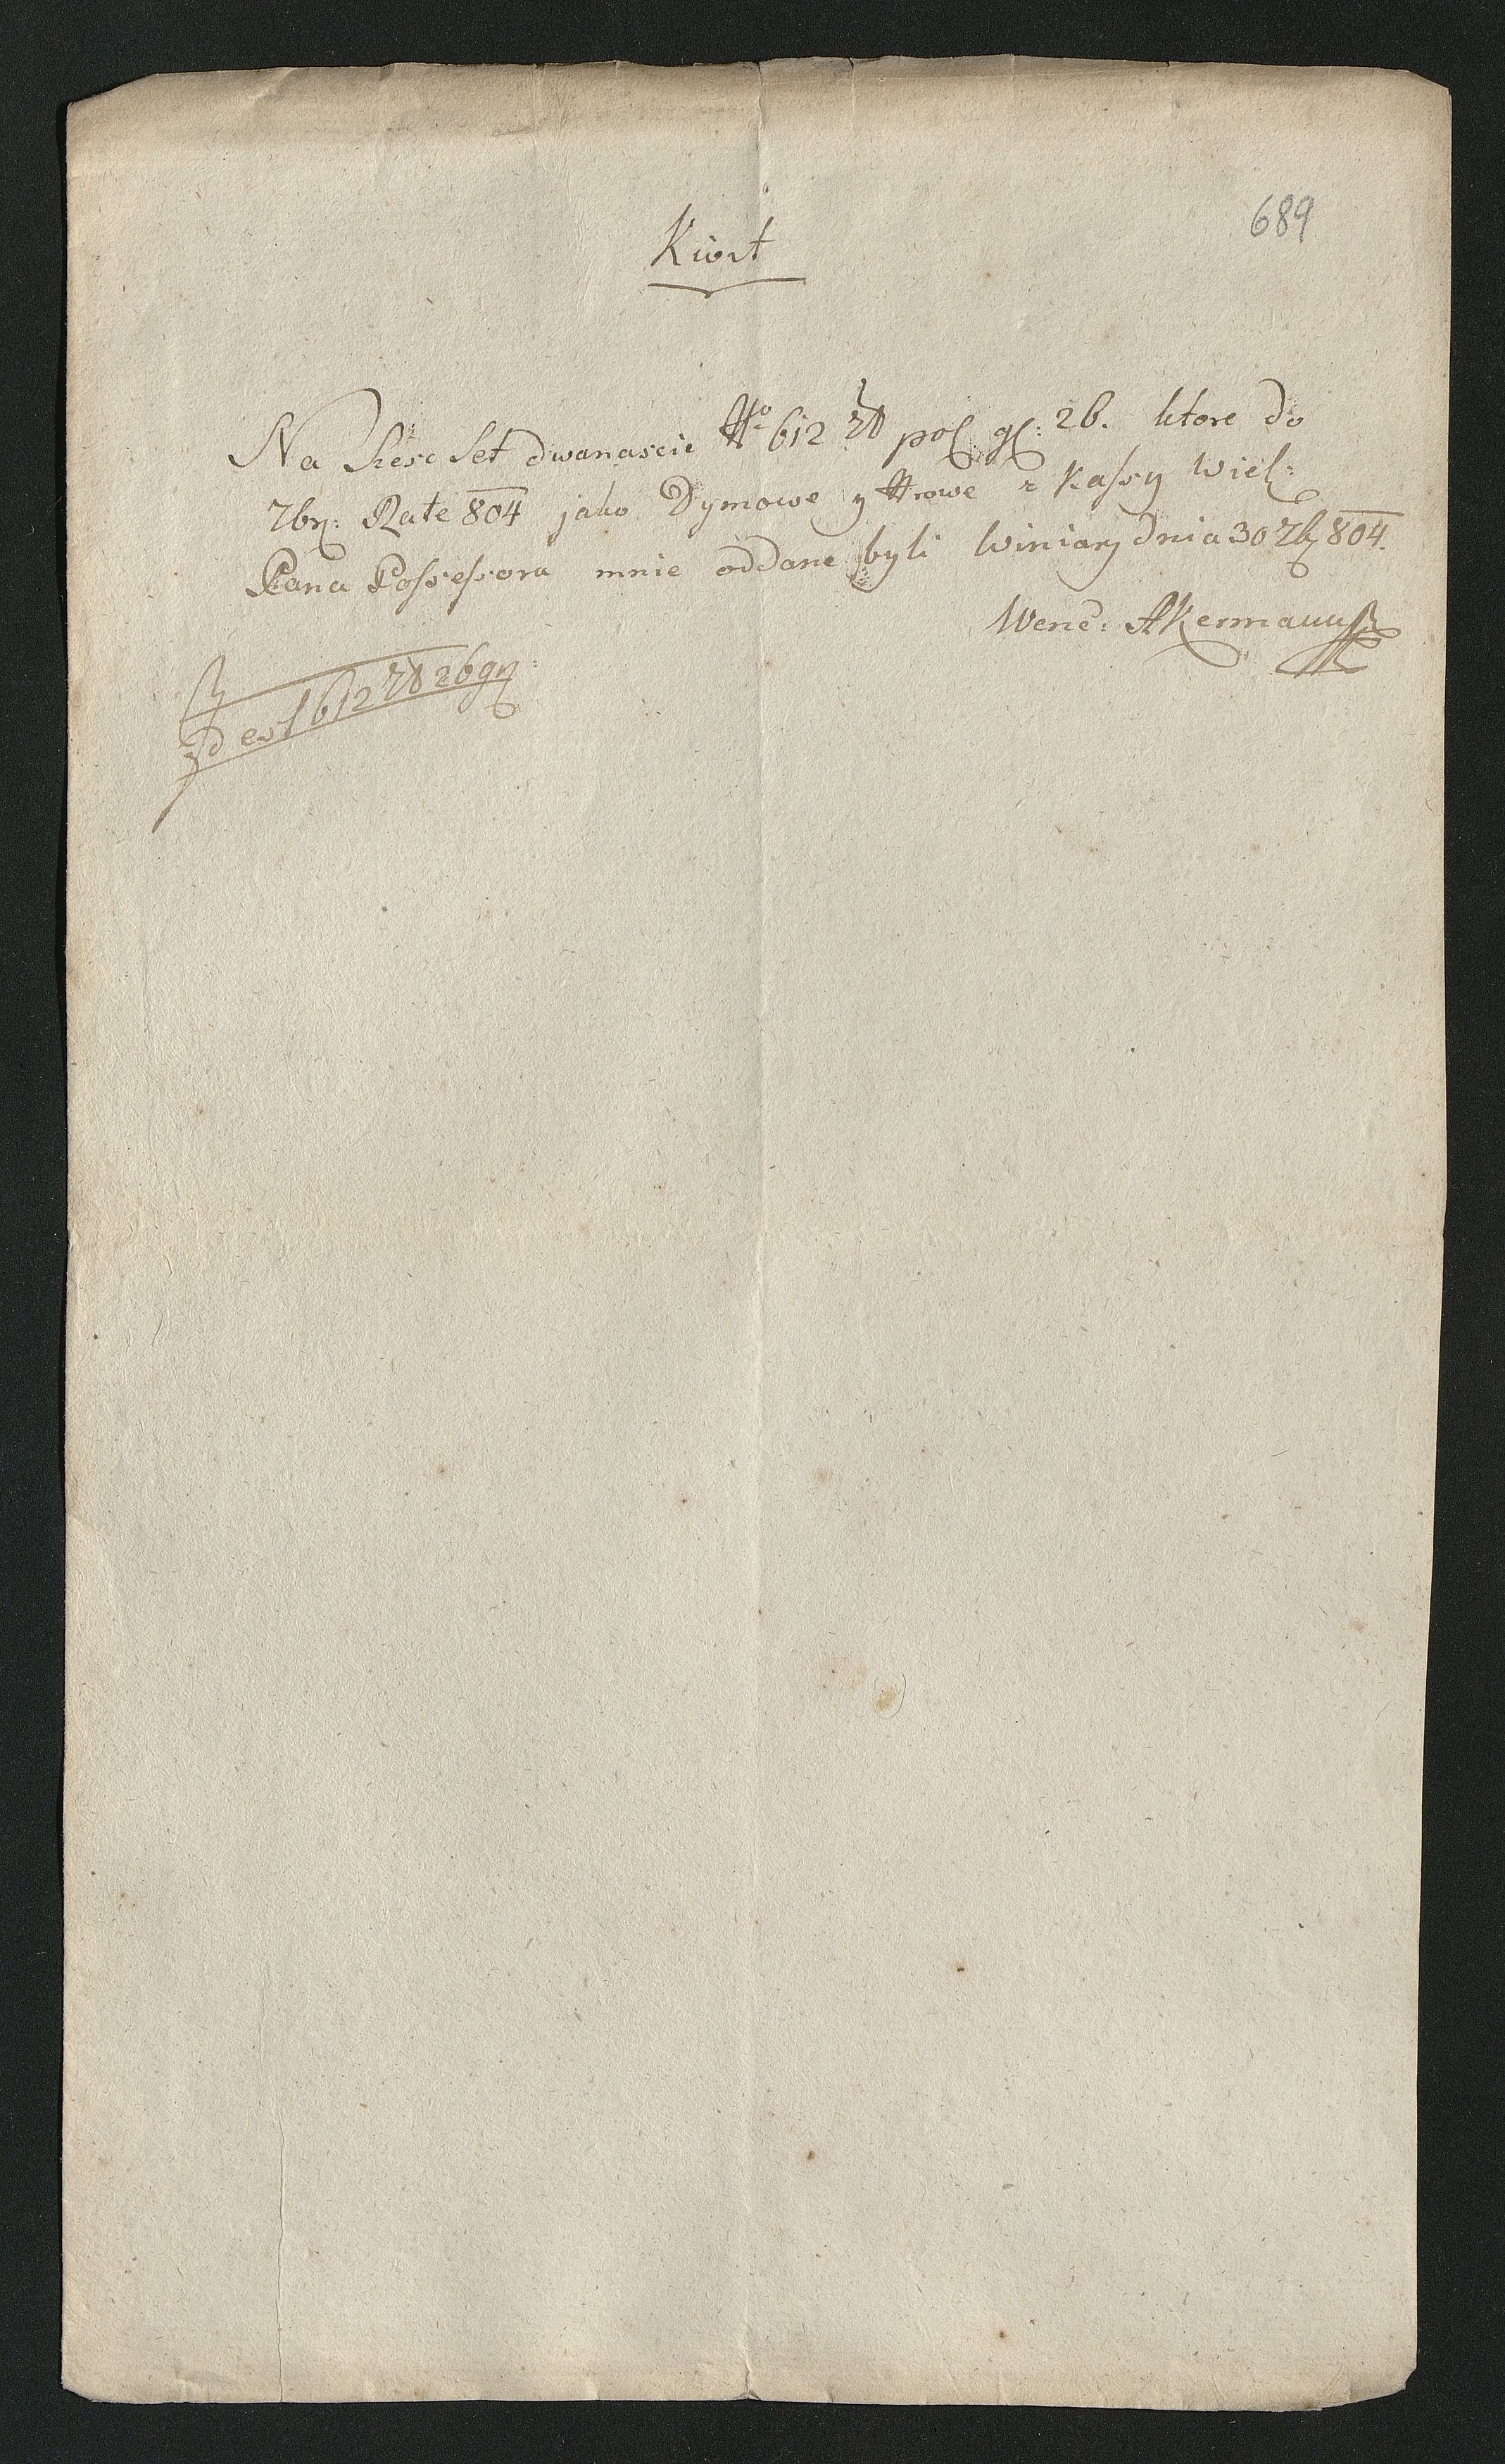 689
Kwit
Na Szesc Set dwanascie No 612 zł pol gl: 26. ktore do
7br: Rate 804 jako Dymowe y z Kassy Wiel:
Pana Possessora mnie oddane byli Winiary dnia 30 7br 804.
Wenc: Akermann
Id est 612 zł 26 gr: